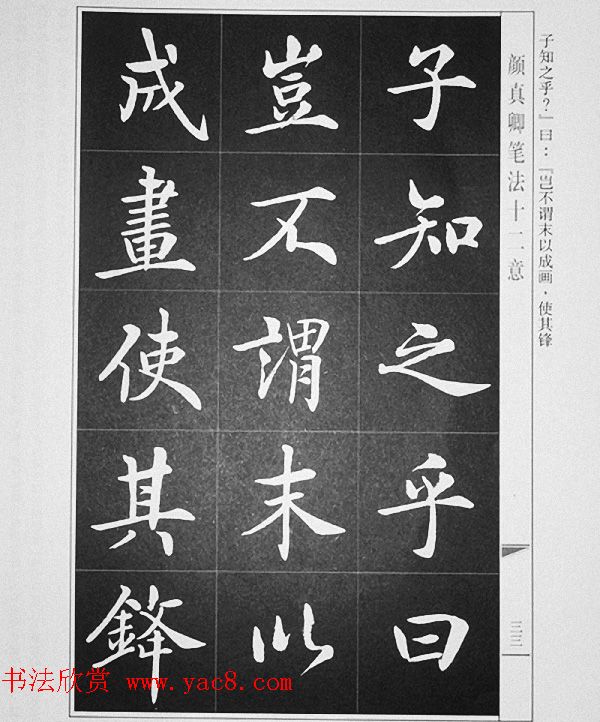 子知之乎？」曰：「岂不谓末以成画，使其锋
颜真卿笔法十二意
子知之乎曰
豈不謂末以
成畫使其鋒
三三
书法欣赏 www.yac8.com